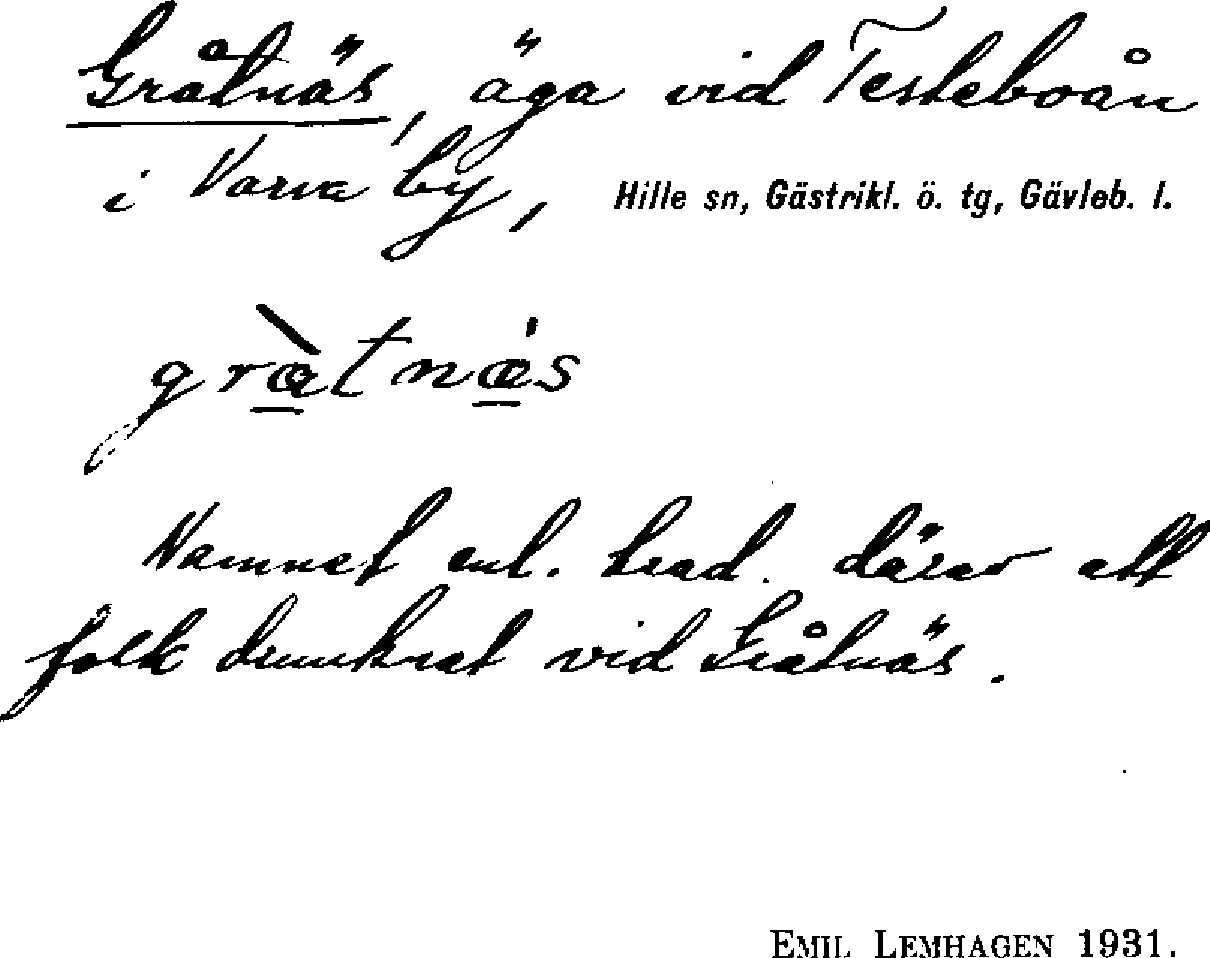 Gråtnäs, äga vid Testeboån
i Varva by, Hille sn, Gästrikl. ö. tg, Gävleb. l.
gràtnæ̀s
Namnet enl. trad. därav att
folk drunknat vid Gråtnäs.
EMIL LEMHAGEN 1931.